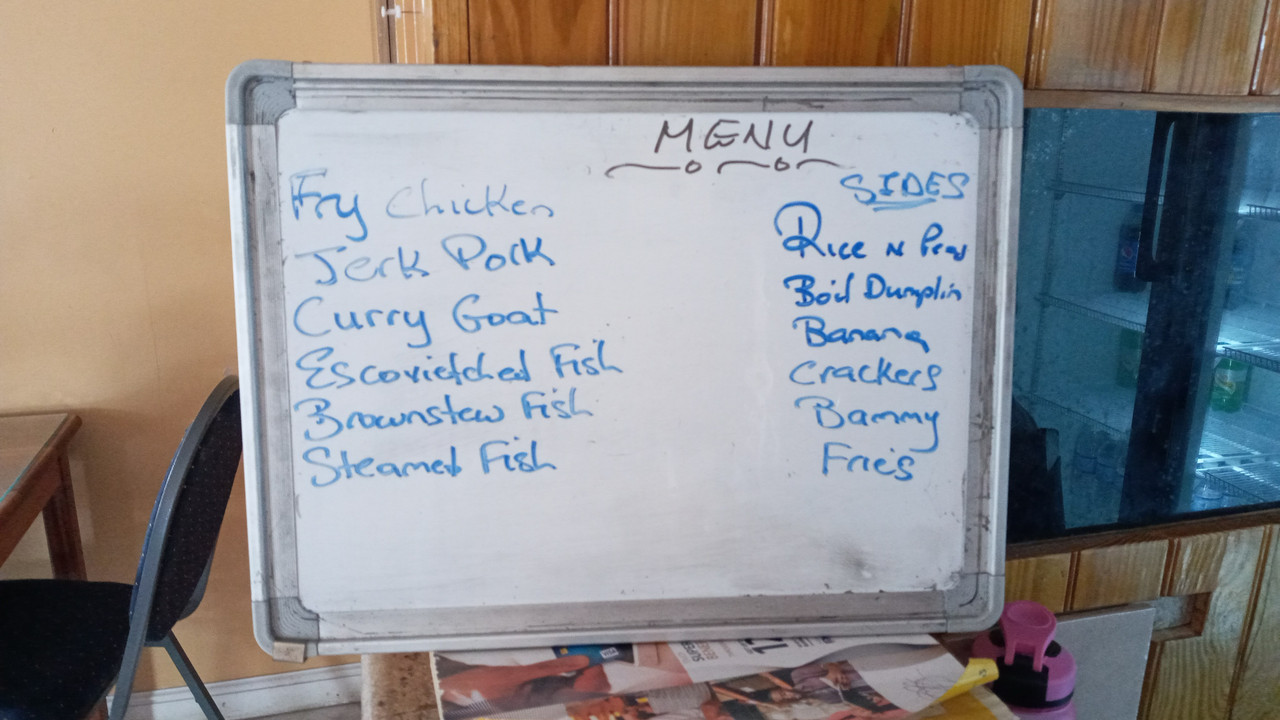 MENU
Fry Chicken
Jerk Pork
Curry Goat
Escovietched Fish
Brownstew Fish
Steamed Fish
SIDES
Rice N Peas
Boil Dumplin
Banana
Crackers
Bammy
Fries